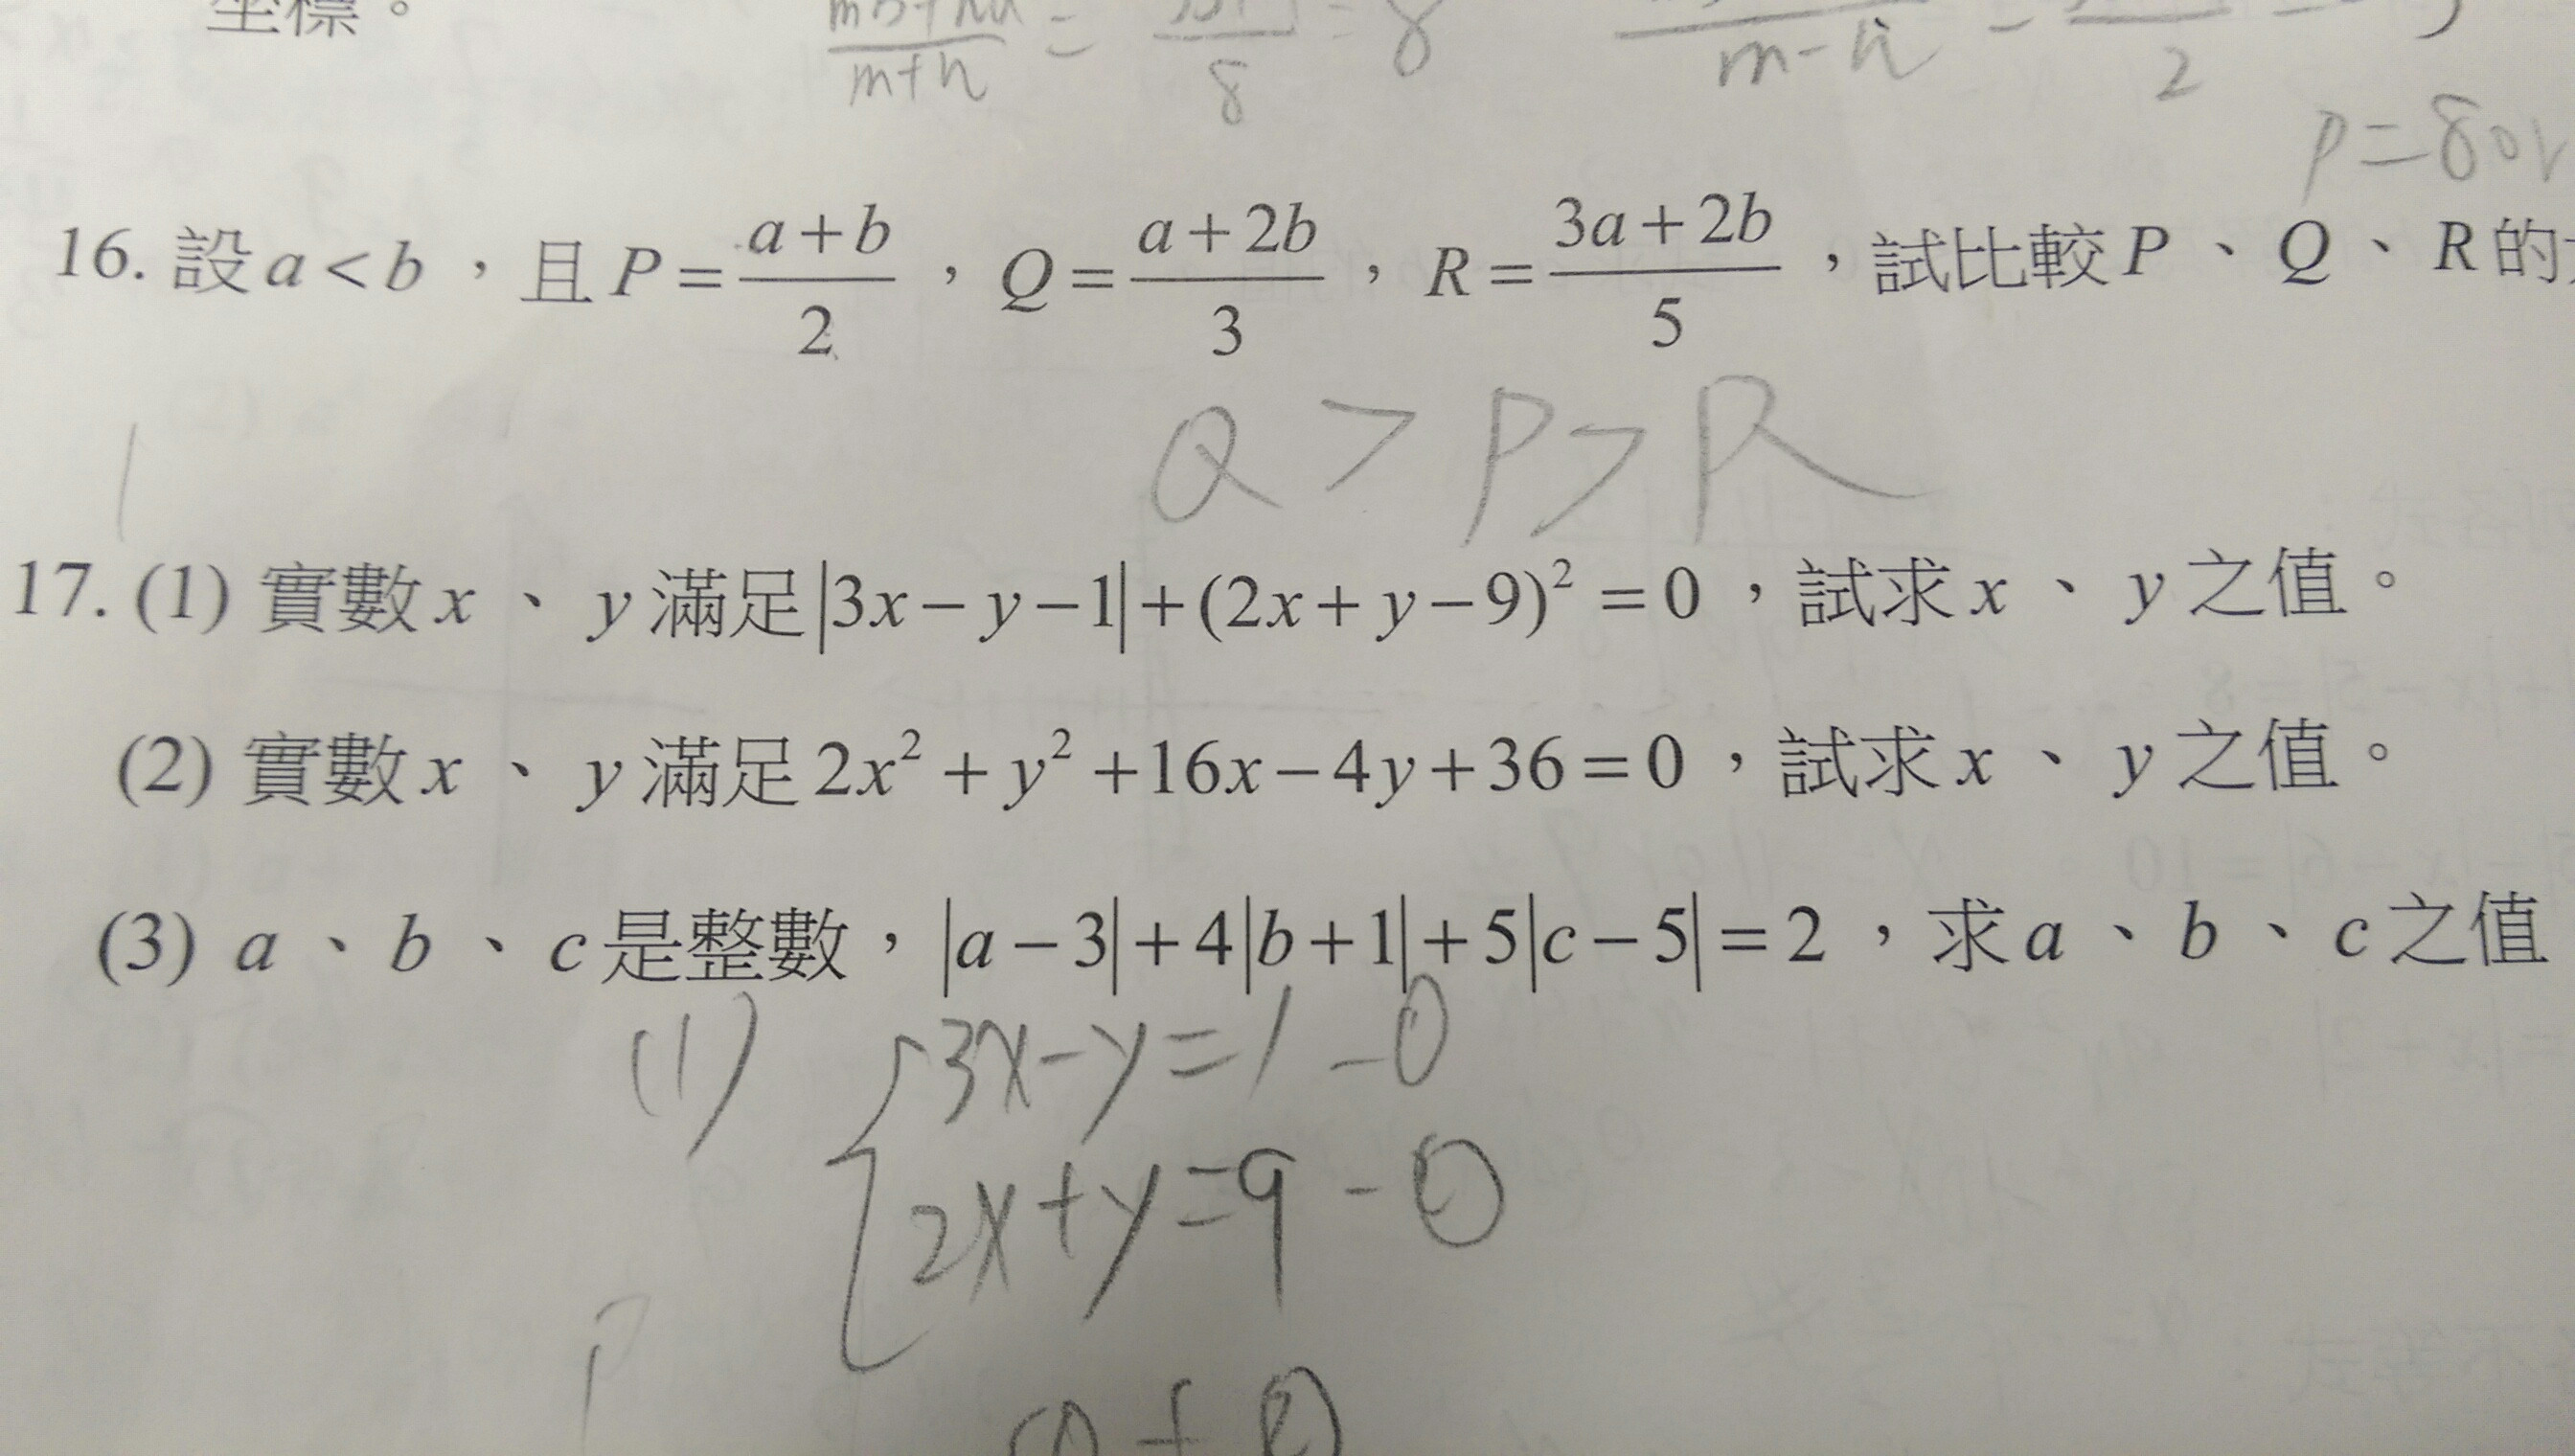 坐標。
m+n = 8 = 8
m-n = 2
P=8or
16. 設 a < b ,且 P = \frac{a+b}{2} , Q = \frac{a+2b}{3} , R = \frac{3a+2b}{5} ,試比較 P 、 Q 、 R 的
Q > P > R
17. (1) 實數 x 、 y 滿足 |3x-y-1|+(2x+y-9)² = 0 ,試求 x 、 y 之值。
(2) 實數 x 、 y 滿足 2x² + y² +16x-4y+36=0 ,試求 x 、 y 之值。
(3) a 、 b 、 c 是整數, |a-3|+4|b+1|+5|c-5|=2 ,求 a 、 b 、 c 之值
(1) 3x-y=1
2x+y=9